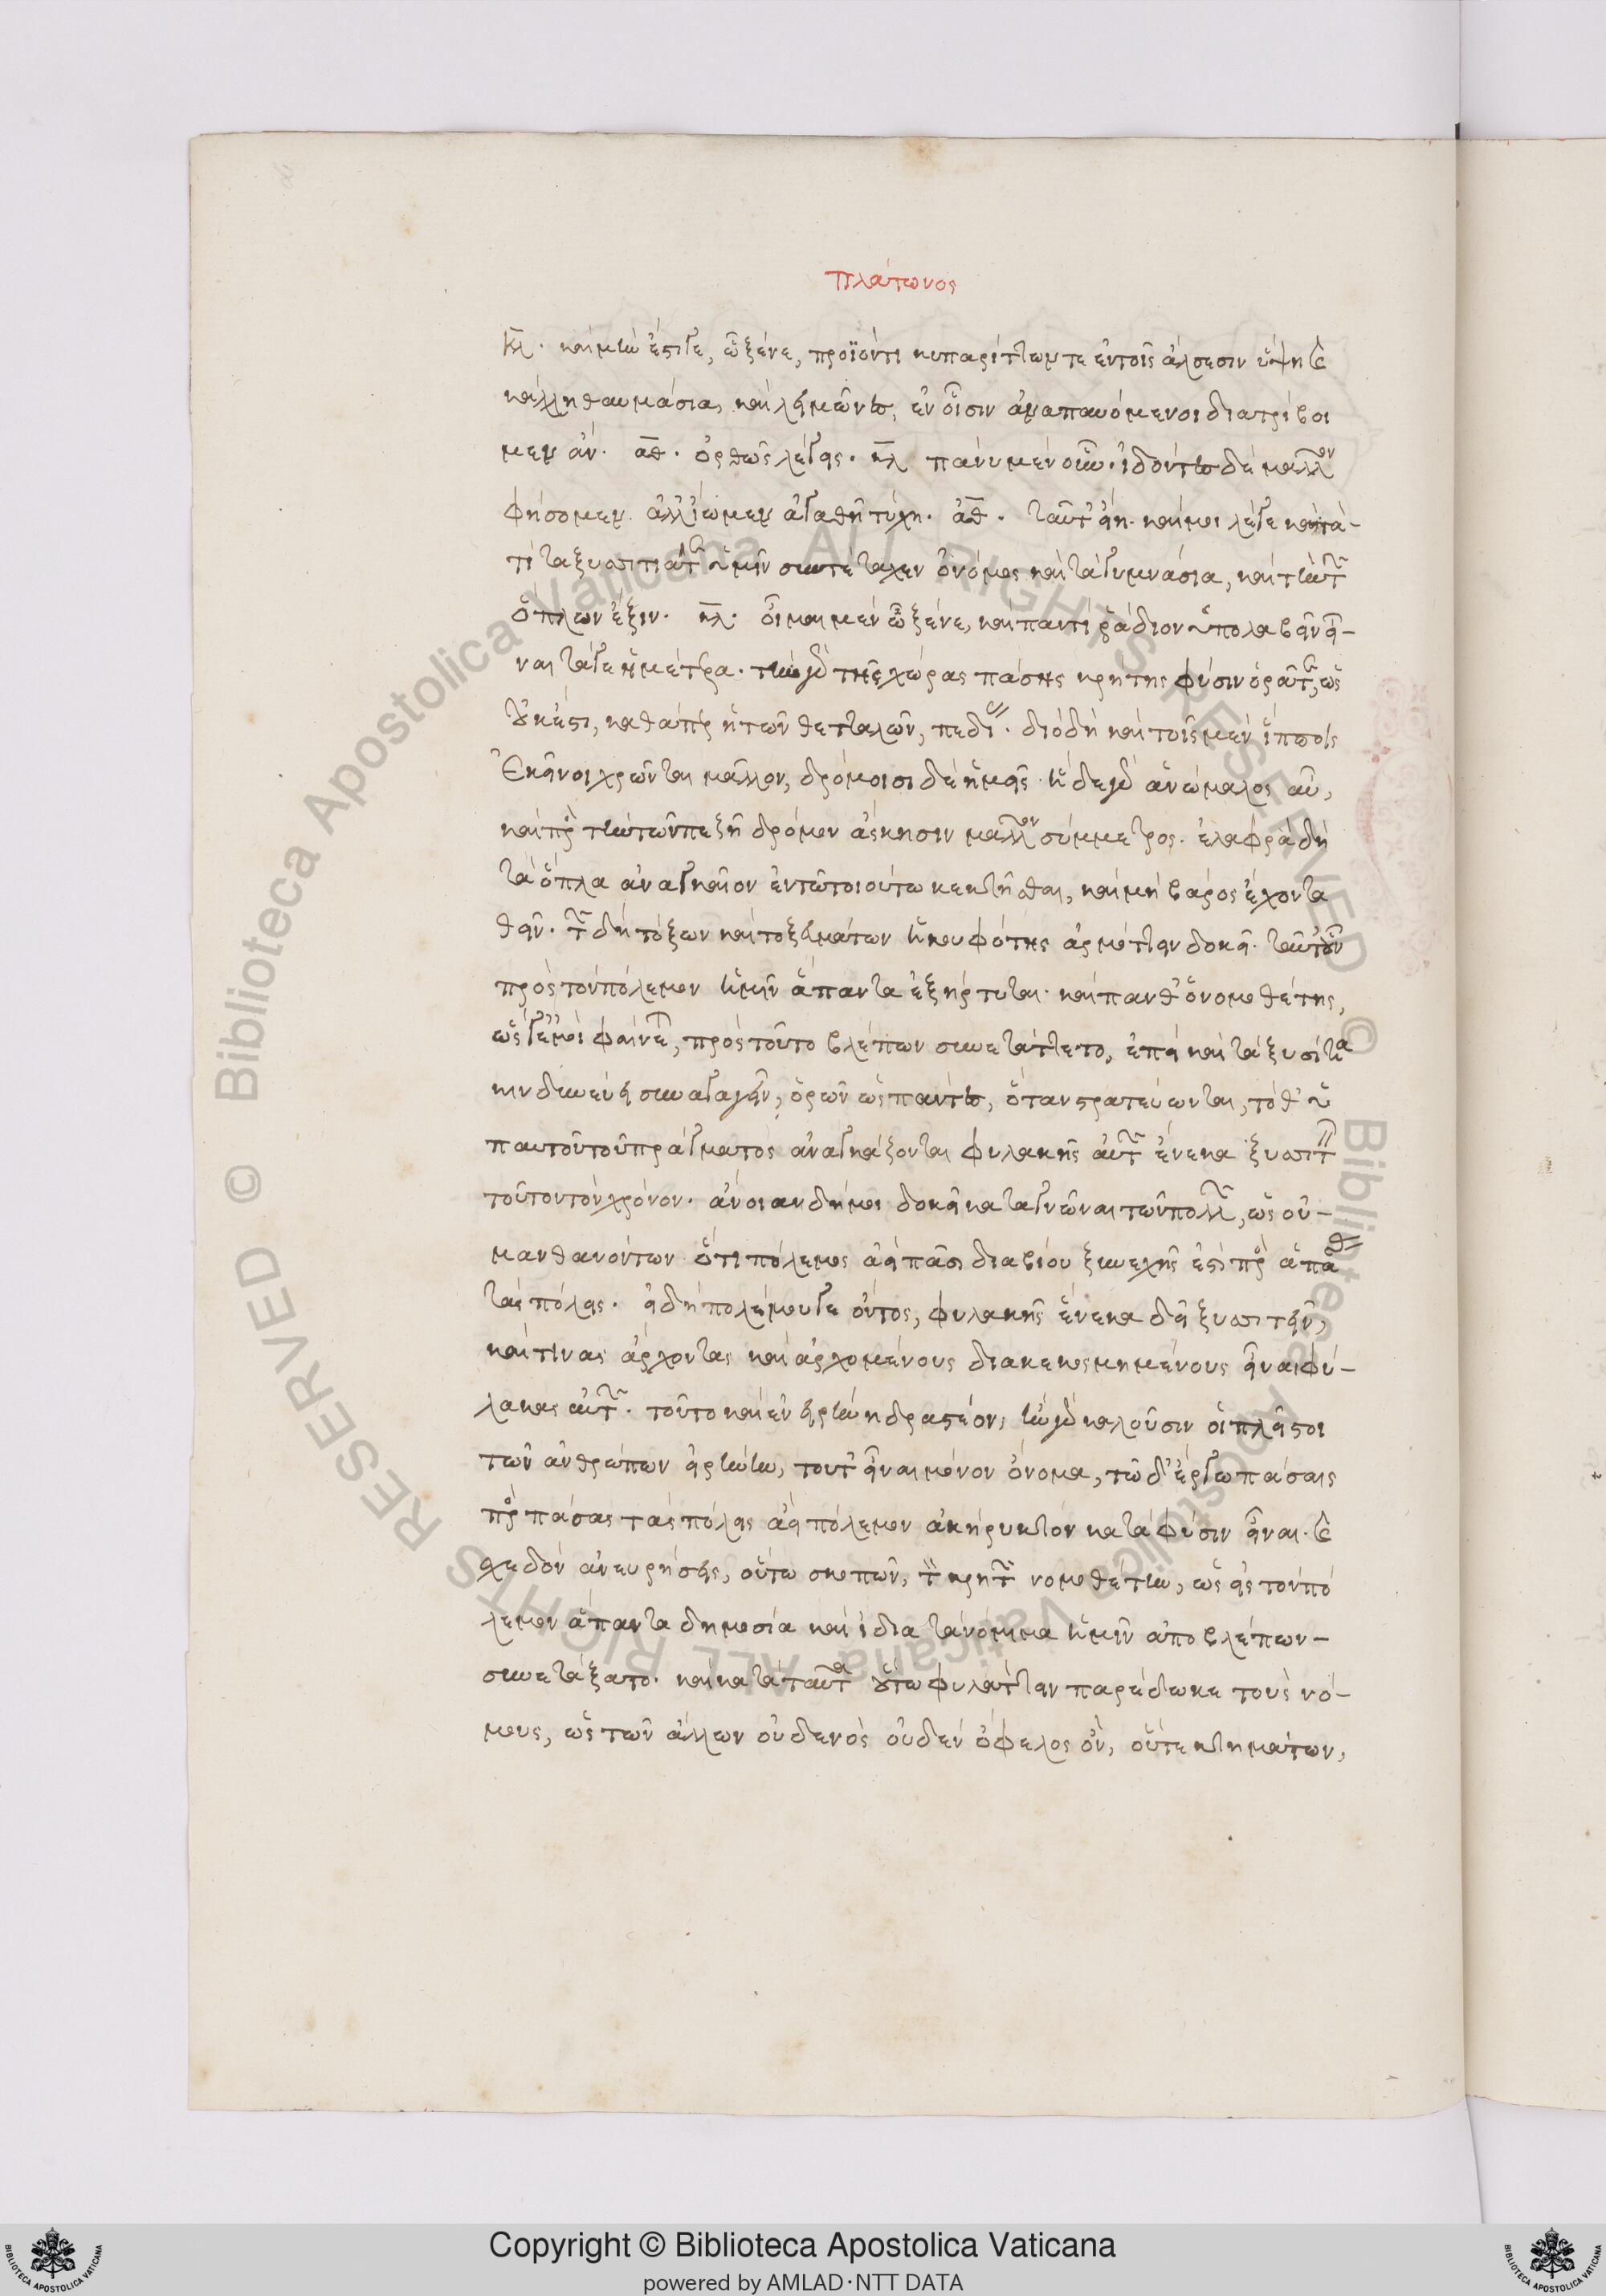 Πλάτωνος
κλ. καὶ μὴν ἔστι γε, ὦ ξένε, προϊόντι κυπαρίττων τε ἐν τοῖς ἄλσεσιν ὕψη καὶ
κάλλη θαυμάσια, καὶ λειμῶνες, ἐν οἷσιν ἀναπαυόμενοι διατρίβοι
μεν ἄν. αθ. ὀρθῶς λέγεις. κλ πάνυ μὲν οὖν. ἰδόντες δὲ μᾶλλον
φήσομεν. ἀλλ' ἴωμεν ἀγαθῇ τύχῃ. ἀθ. ταῦτ' εἴη. καί μοι λέγε κατὰ-
τί τὰ ξυσσίτιά τε ὑμῖν συντέταχεν ὁ νόμος καὶ τὰ γυμνάσια, καὶ τὴν τῶν
ὅπλων ἕξιν. κλ. οἶμαι μὲν ὦ ξένε, καὶ παντὶ ῥάδιον ὑπολαβεῖν εἶ-
ναι τά γε ἡμέτερα. τὴν γὰρ τῆς χώρας πάσης κρήτης φύσιν ὁρᾶτε, ὡς
οὐκ ἔστι, καθάπερ ἡ τῶν θετταλῶν, πεδιάς. διὸ δὴ καὶ τοῖς μὲν ἵπποις
ἐκεῖνοι χρῶνται μᾶλλον, δρόμοισι δὲ ἡμεῖς. ἥδε γὰρ ἀνώμαλος αὖ,
καὶ πρὸς τὴν τῶν πεζῇ δρόμων ἄσκησιν μᾶλλον σύμμετρος. ἐλαφρὰ δὴ
τὰ ὅπλα ἀναγκαῖον ἐν τῷ τοιούτω κεκτῆσθαι, καὶ μὴ βάρος ἔχοντα
θεῖν. τῶν δὴ τόξων καὶ τοξευμάτων ἡ κουφότης ἁρμόττειν δοκεῖ. ταῦτ' οὖν
πρὸς τὸν πόλεμον ἡμῖν ἅπαντα ἐξήρτυται. καὶ πανθ' ὁ νομοθέτης,
ὥς γέ μοι φαίνεται, πρὸς τοῦτο βλέπων συνετάττετο, ἐπεὶ καὶ τὰ ξυσίτια
κινδυνεύει συναγαγεῖν, ὁρῶν ὡς πάντες, ὅταν στρατεύωνται, τόθ' ὑ
π' αὐτοῦ τοῦ πράγματος ἀναγκάζονται φυλακῆς αὑτῶν ἕνεκα ξυσσιτεῖν
τοῦτον τὸν χρόνον. ἄνοιαν δή μοι δοκεῖ καταγνῶναι τῶν πολλῶν, ὡς οὐ-
μανθανόντων ὅτι πόλεμος ἀεὶ πᾶσι διὰ βίου ξυνεχής ἐστι πρὸς ἁπάσας
τὰς πόλεις. εἰ δὴ πολέμου γε ὄντος, φυλακῆς ἕνεκα δεῖ ξυσσιτεῖν,
καί τινας ἄρχοντας καὶ ἀρχομένους διακεκοσμημένους εἶναι φύ-
λακας αὐτῶν. τοῦτο καὶ ἐν εἰρήνη δραστέον, ἣν γὰρ καλοῦσιν οἱ πλεῖστοι
τῶν ἀνθρώπων εἰρήνην, τοῦτ' εἶναι μόνον ὄνομα, τῷ δ' ἔργω πάσαις
πρὸς πάσας τὰς πόλεις ἀεὶ πόλεμον ἀκήρυκτον κατὰ φύσιν εἶναι. καὶ
σχεδὸν ἀνευρήσεις, οὕτω σκοπῶν, τὸν κρητῶν νομοθέτην, ὡς εἰς τὸν πό
λεμον ἅπαντα δημοσία καὶ ἰδία τὰ νόμιμα ἡμῖν ἀποβλέπων-
συνετάξατο. καὶ κατὰ ταῦτα οὕτω φυλάττειν παρέδωκε τοὺς νό-
μους, ὡς τῶν ἄλλων οὐδενὸς οὐδὲν ὄφελος ὂν, οὔτε κτημάτων,
Copyright © Biblioteca Apostolica Vaticana
powered by AMLAD·NTT DATA